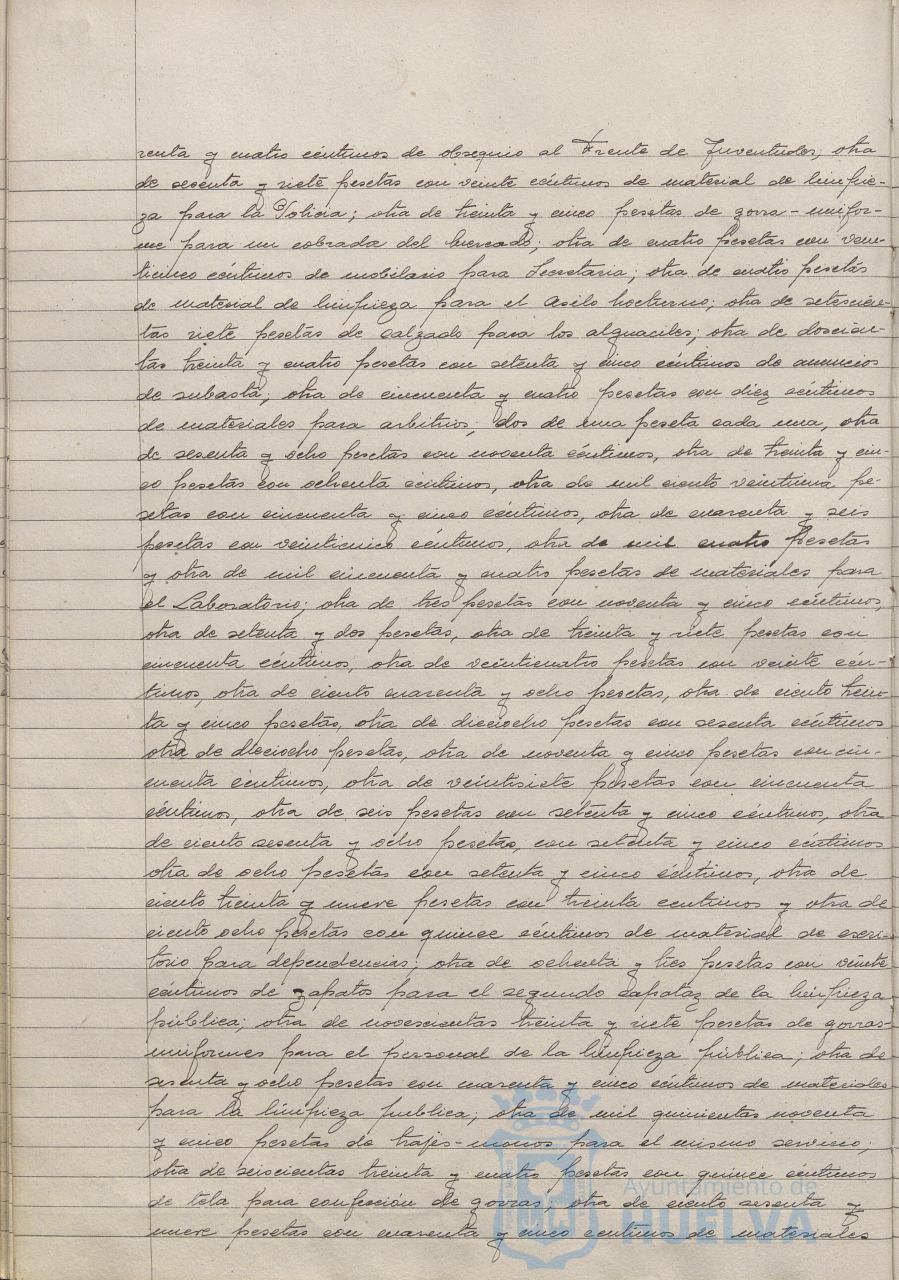 renta y cuatro céntimos de obsequio al Frente de Juventudes; otra
de sesenta y siete pesetas con veinte céntimos de material de limpie-
za para la Policia; otra de treinta y cinco pesetas de gorra-unifor-
me para un cobrada del Mercado; otra de cuatro pesetas con vein-
ticinco céntimos de mobilario para Secretaria; otra de cuatro pesetas
de material de limpieza para el Asilo Nocturno; otra de setescie-
tas siete pesetas de calzado para los alguaciles; otra de doscien-
tas treinta y cuatro pesetas con setenta y cinco céntimos de anuncios
de subasta; otra de cincuenta y cuatro pesetas con diez céntimos
de materiales para arbitrios; dos de una peseta cada una, otra
de sesenta y ocho pesetas con noventa céntimos, otra de treinta y cin-
co pesetas con ochenta céntimos, otra de mil ciento veintiuna pe-
setas con cincuenta y cinco céntimos, otra de cuarenta y seis
pesetas con veinticinco céntimos, otra de mil cuatro pesetas
y otra de mil cincuenta y cuatro pesetas de materiales para
el Laboratorio; otra de tres pesetas con noventa y cinco céntimos,
otra de setenta y dos pesetas, otra de treinta y siete pesetas con
cincuenta céntimos, otra de veinticuatro pesetas con veinte cén-
timos, otra de ciento cuarenta y ocho pesetas, otra de ciento trein-
ta y cinco pesetas, otra de dieciocho pesetas con sesenta céntimos
otra de dieciocho pesetas, otra de noventa y cinco pesetas con cin-
cuenta céntimos, otra de veintisiete pesetas con cincuenta
céntimos, otra de seis pesetas con setenta y cinco céntimos, otra
de ciento sesenta y ocho pesetas, con setenta y cinco céntimos
otra de ocho pesetas con setenta y cinco céntimos, otra de
ciento treinta y nueve pesetas con treinta centimos y otra de
ciento ocho pesetas con quince céntimos de material de escri-
torio para dependencias; otra de ochenta y tres pesetas con veinte
céntimos de zapatos para el segundo capataz de la limpieza
pública; otra de novescientas treinta y siete pesetas de gorras-
uniformes para el personal de la limpieza pública; otra de
sesenta y ocho pesetas con cuarenta y cinco céntimos de materiales
para la limpieza publica; otra de mil quinientas noventa
y cinco pesetas de trajes-monos para el mismo servicio;
otra de seiscientas treinta y cuatro pesetas con quince céntimos
de tela para confección de gorras; otra de ciento sesenta y
nueve pesetas con cuarenta y cinco centimos de materiales
Ayuntamiento de
HUELVA